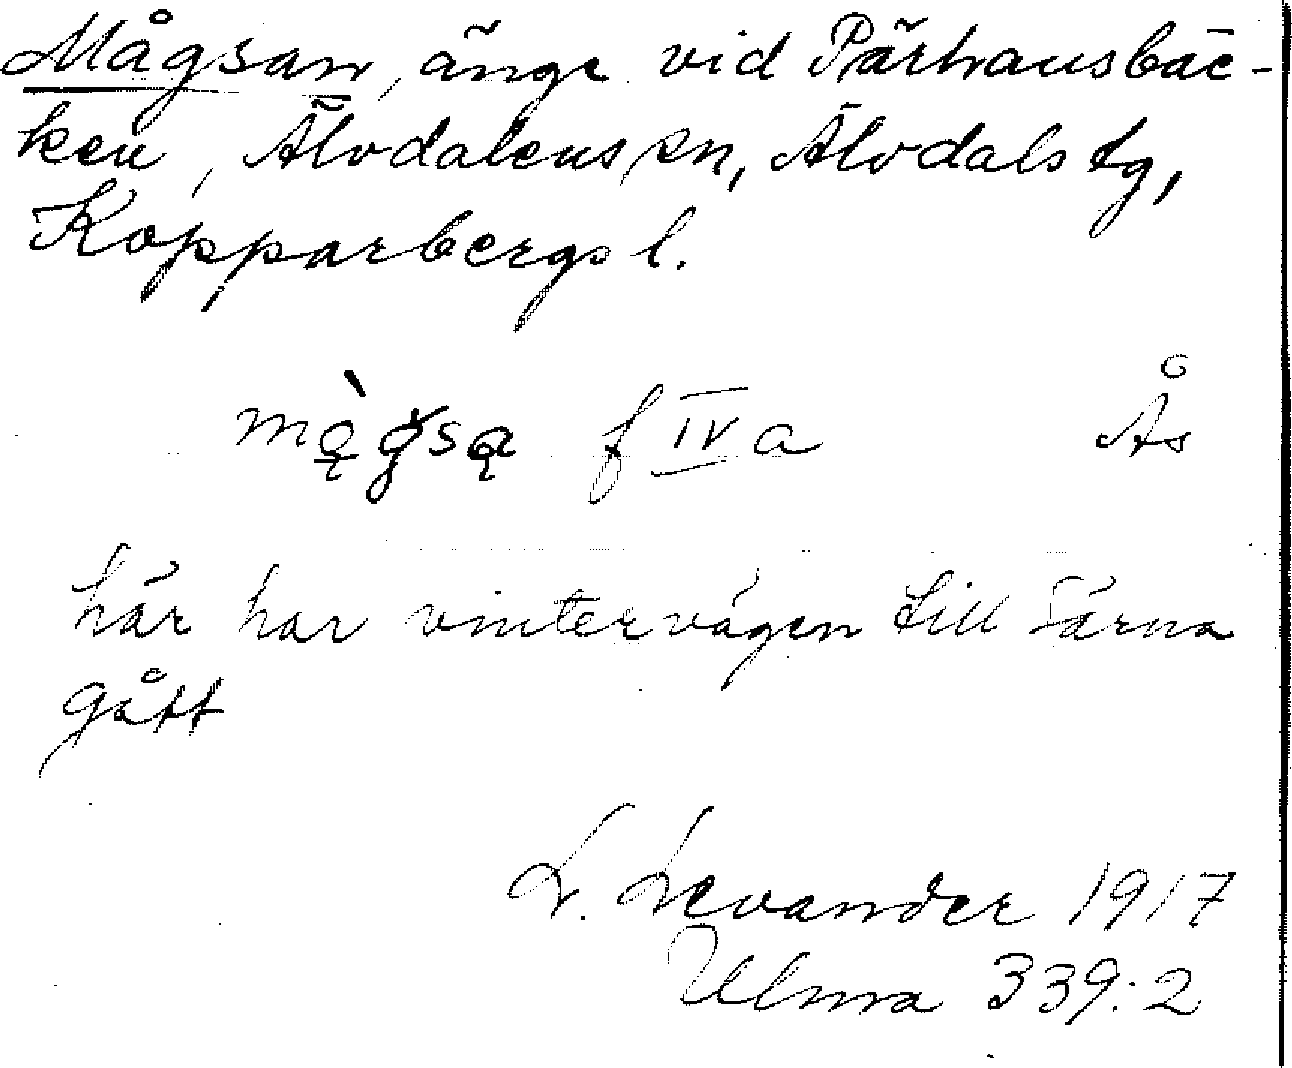 Mågsan, änge vid Pärhansbäc-
ken, Älvdalens sn, Älvdals tg,
Kopparbergs l.
f IV a Ås
här har vintervägen till Särna
gått
L. Levander 1917
Ulma 339:2